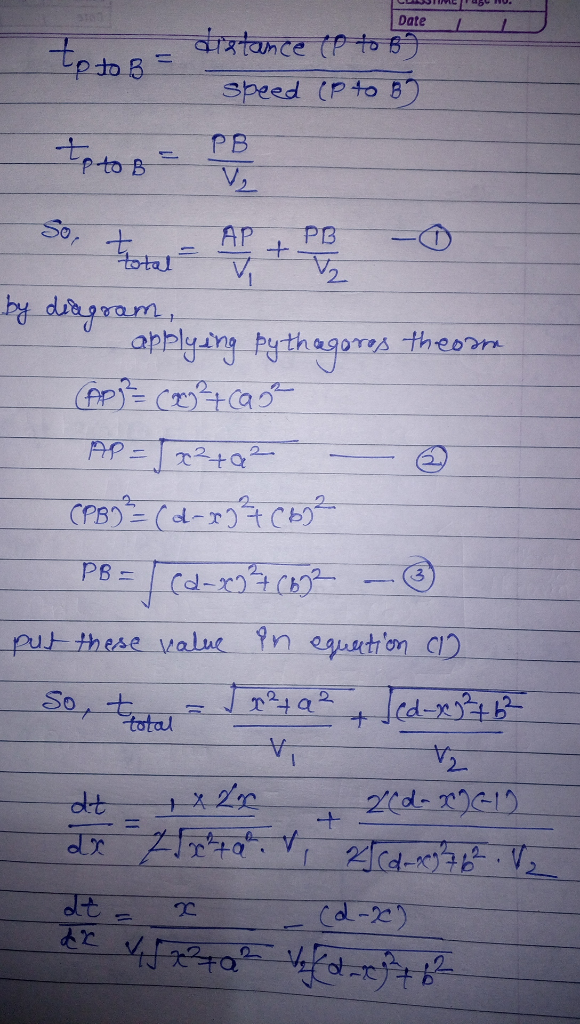 Date / /
t_{P to B} = distance (P to B) / speed (P to B)
t_{P to B} = PB / V_2
So, t_{total} = AP / V_1 + PB / V_2 — ①
by diagram,
applying pythagoras theorm
(AP)^2 = (x)^2 + (a)^2
AP = √(x^2 + a^2) — ②
(PB)^2 = (d-x)^2 + (b)^2
PB = √((d-x)^2 + (b)^2) — ③
put these value in equation (1)
So, t_{total} = √(x^2 + a^2) / V_1 + √((d-x)^2 + b^2) / V_2
dt/dx = 1 × 2x / 2√(x^2 + a^2) . V_1 + 2(d-x)(-1) / 2√((d-x)^2 + b^2) . V_2
dt/dx = x / V_1√(x^2 + a^2) - (d-x) / V_2√((d-x)^2 + b^2)